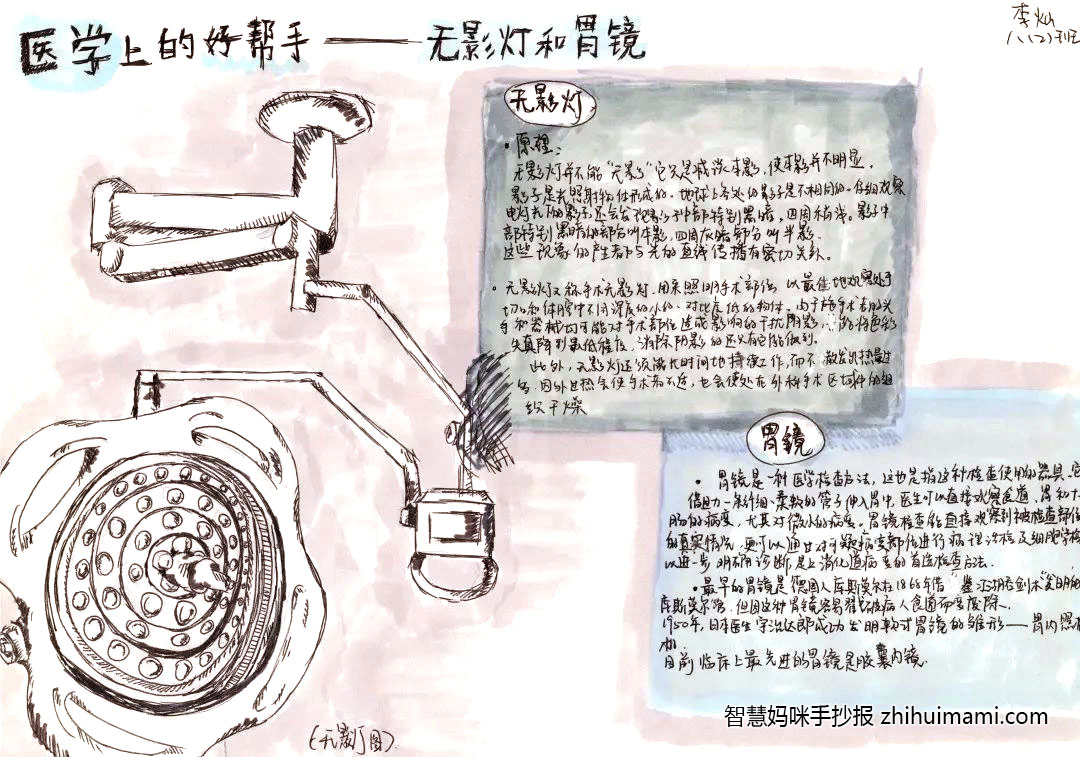 医学上的好帮手——无影灯和胃镜
李灿
八(2)班
无影灯
·原理:
无影灯并不能“无影”它只是减淡本影,使本影并不明显。
影子是光照射物体形成的。地球上各处的影子是不相同的。仔细观察
电灯光下的影子,还会发现影子中部特别黑暗,四周稍浅。影子中
部特别黑暗的部分叫本影,四周灰暗部分叫半影。
这些现象的产生都与光的直线传播有密切关系。
·无影灯又称手术无影灯,用来照明手术部位,以最佳地观察处于
切口和体腔中不同深度的小的、对比度低的物体。由于施手术者的头
手和器械均可能对手术部位造成干扰阴影
失真降到最低程度,
此外,无影灯还须能长时间地持续工作,而不散发出热量过
多,因外过热会使手术者不适,也会使处在外科手术区域中的组
织干燥
胃镜
·胃镜是一种医学检查方法,这也是指这种检查使用的器具。它
借助一条纤细、柔软的管子伸入胃中,医生可以直接观察食道、胃和十
肠的病变,尤其对微小的病变。胃镜检查能直接观察到被检查部位
的真实情况,更可以通过对可疑病变部位进行病理活检及细胞学检
以进一步明确诊断,是上消化道病变的首选检查方法。
·最早的胃镜是德国人库斯莫尔在1868年借
库斯莫尔管,但因这种胃镜容易戳破病人食道而废除。
1950年,日本医生宇治达郎成功发明软式胃镜的雏形——胃内照相
机.
目前临床上最先进的胃镜是胶囊内镜.
(无影灯图)
智慧妈咪手抄报 zhihuimami.com